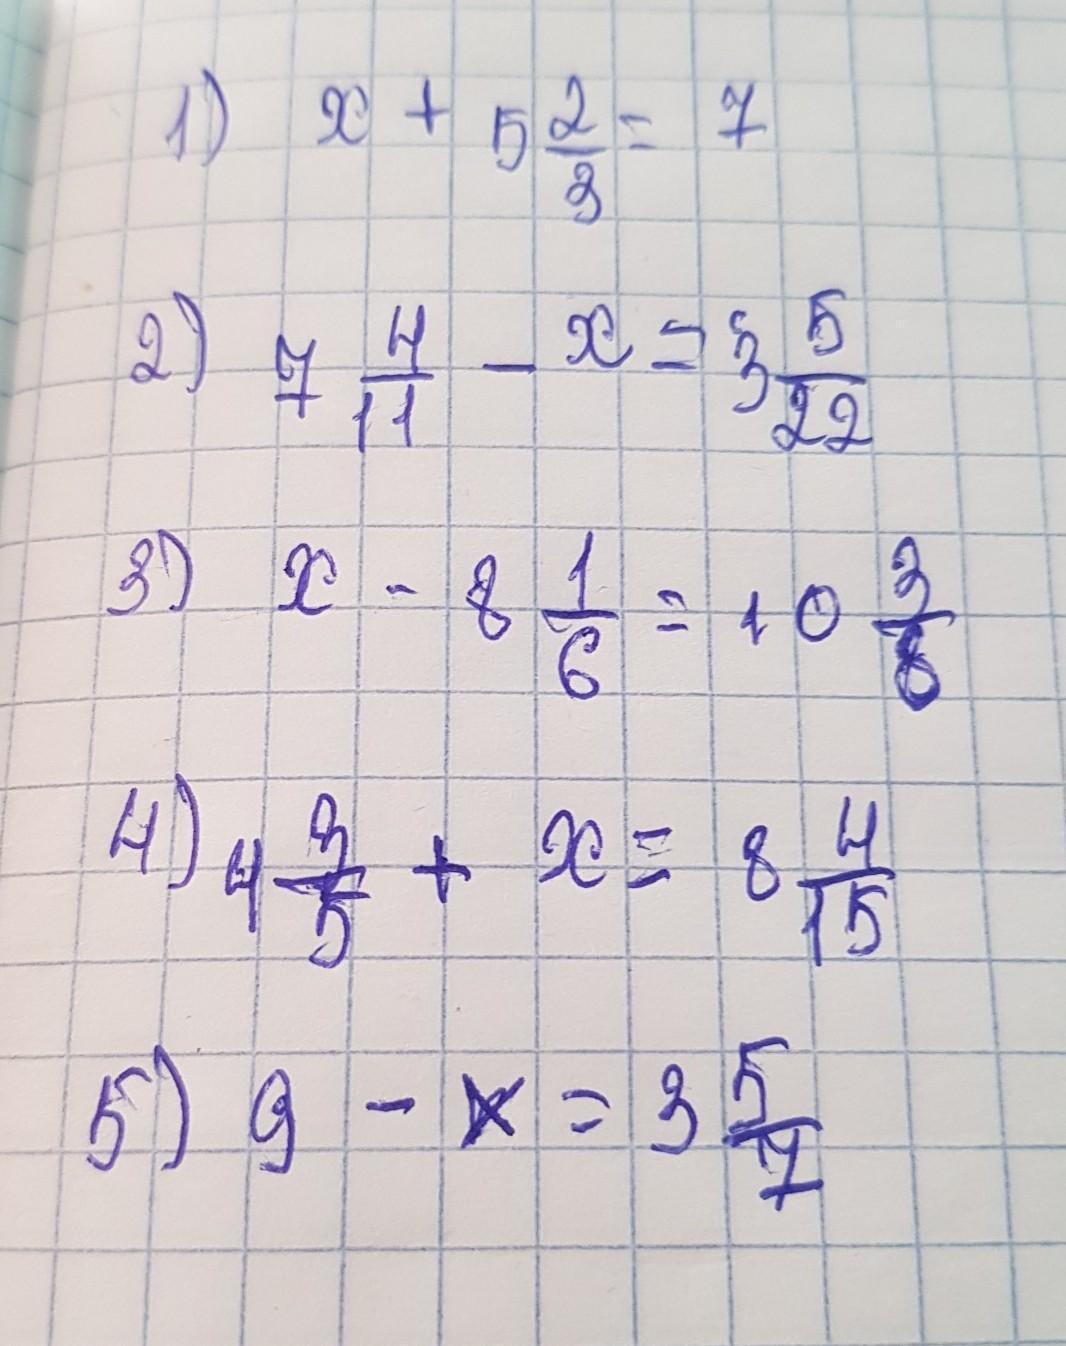 1) x + 5 2/3 = 7
2) 7 4/11 - x = 3 5/22
3) x - 8 1/6 = 10 3/8
4) 4 3/5 + x = 8 4/15
5) 9 - x = 3 5/7